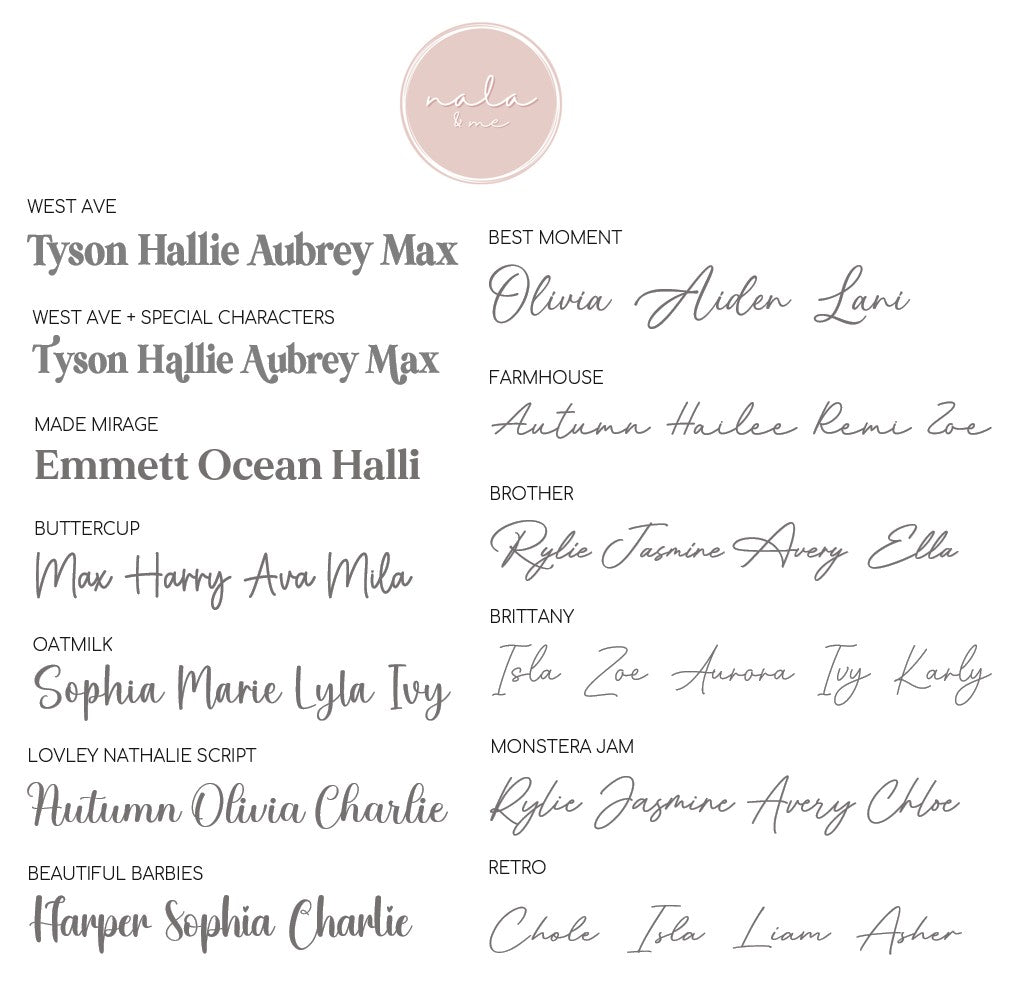 nala
& me
WEST AVE
Tyson Hallie Aubrey Max
WEST AVE + SPECIAL CHARACTERS
Tyson Hallie Aubrey Max
MADE MIRAGE
Emmett Ocean Halli
BUTTERCUP
Max Harry Ava Mila
OATMILK
Sophia Marie Lyla Ivy
LOVLEY NATHALIE SCRIPT
Autumn Olivia Charlie
BEAUTIFUL BARBIES
Harper Sophia Charlie
BEST MOMENT
Olivia Aiden Lani
FARMHOUSE
Autumn Hailee Remi Zoe
BROTHER
Rylie Jasmine Avery Ella
BRITTANY
Isla Zoe Aurora Ivy Karly
MONSTERA JAM
Rylie Jasmine Avery Chloe
RETRO
Chole Isla Liam Asher